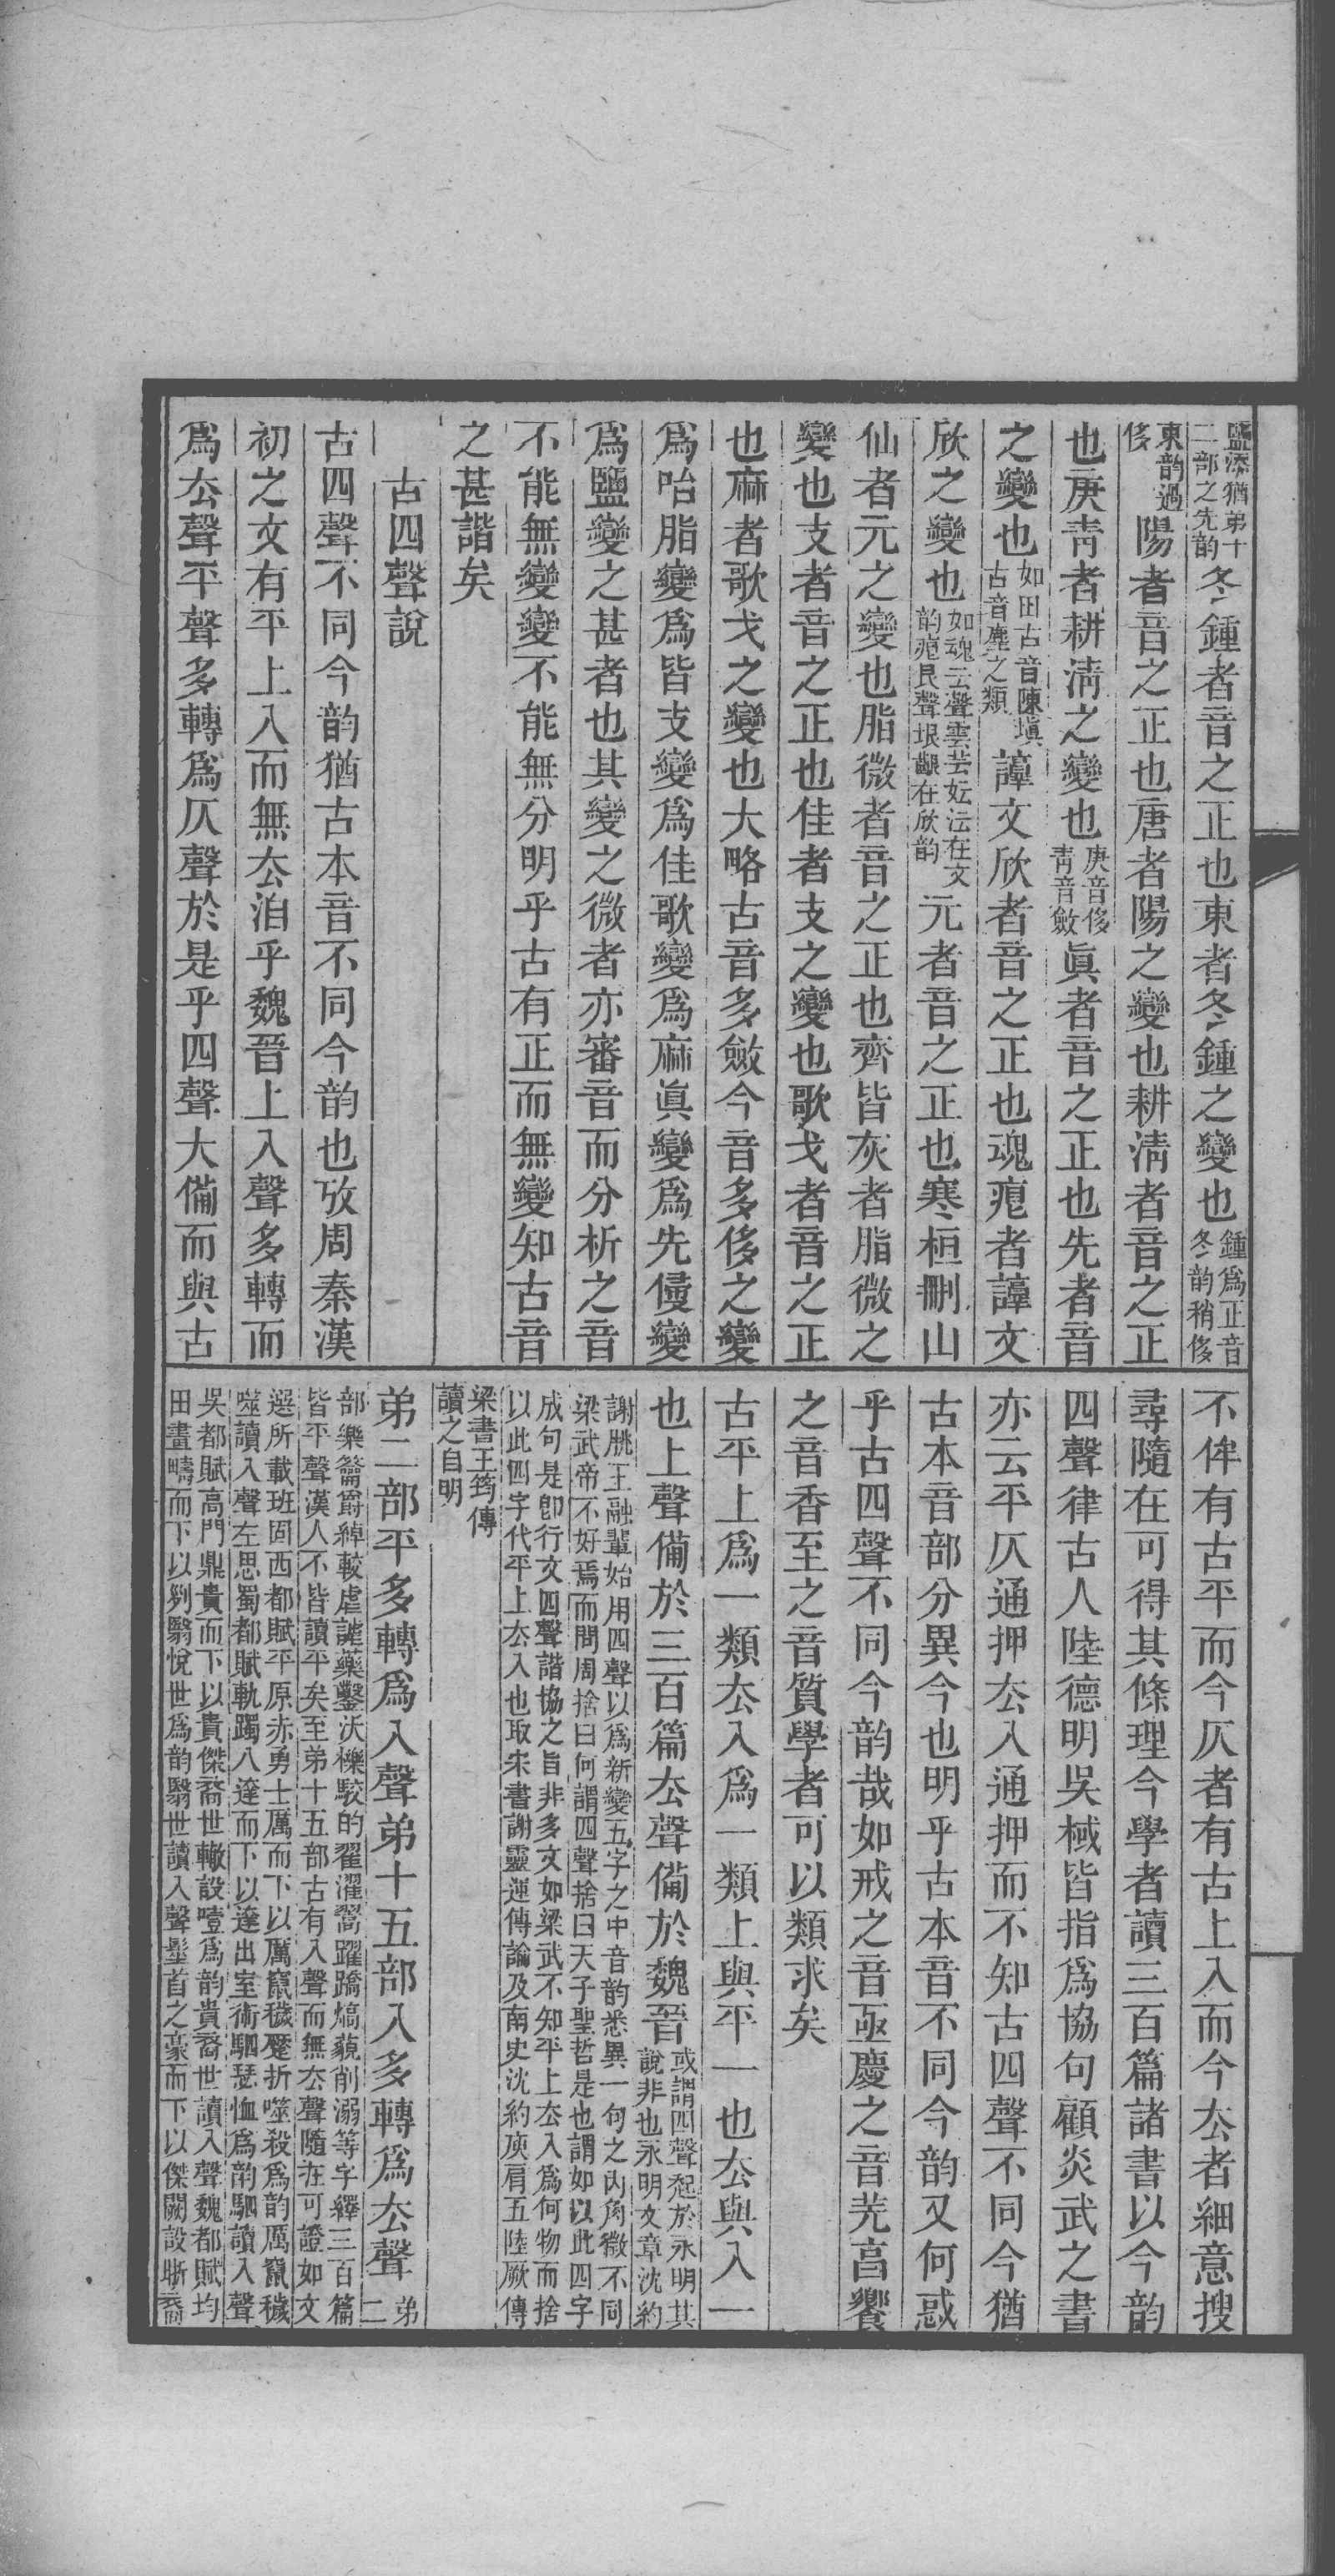 鹽添猶弟十二部之先韵冬鍾者音之正也東者冬鍾之變也鍾爲正音冬韵稍侈
東韵過侈陽者音之正也唐者陽之變也耕淸者音之正
也庚靑者耕淸之變也庚音侈靑音斂眞者音之正也先者音
之變也如田古音陳塡古音塵之類諄文欣者音之正也魂痕者諄文
欣之變也如魂云聲雲芸妘沄在文韵痕艮聲垠齦在欣韵元者音之正也寒桓刪山
仙者元之變也脂微者音之正也齊皆灰者脂微之
變也支者音之正也佳者支之變也歌戈者音之正
也麻者歌戈之變也大略古音多斂今音多侈之變
爲咍脂變爲皆支變爲佳歌變爲麻眞變爲先侵變
爲鹽變之甚者也其變之微者亦審音而分析之音
不能無變變不能無分明乎古有正而無變知古音
之甚諧矣
古四聲說
古四聲不同今韵猶古本音不同今韵也攷周秦漢
初之文有平上入而無厺洎乎魏晉上入聲多轉而
爲厺聲平聲多轉爲仄聲於是乎四聲大備而與古
不侔有古平而今仄者有古上入而今厺者細意搜
尋隨在可得其條理今學者讀三百篇諸書以今韵
四聲律古人陸德明吳棫皆指爲協句顧炎武之書
亦云平仄通押厺入通押而不知古四聲不同今猶
古本音部分異今也明乎古本音不同今韵又何惑
乎古四聲不同今韵哉如戒之音亟慶之音羌亯饗
之音香至之音質學者可以類求矣
古平上爲一類厺入爲一類上與平一也厺與入一
也上聲備於三百篇厺聲備於魏晉或謂四聲起於永明其說非也永明文章沈約
謝朓王融輩始用四聲以爲新變五字之中音韵悉異一句之內角徵不同
梁武帝不好焉而問周捨曰何謂四聲捨曰天子聖哲是也謂如以此四字
成句是卽行文四聲諧協之旨非多文如梁武不知平上厺入爲何物而捨
以此四字代平上厺入也取宋書謝靈運傳論及南史沈約庾肩五陸厥傳
梁書王筠傳
讀之自明
弟二部平多轉爲入聲弟十五部入多轉爲厺聲弟二
部樂籥爵綽較虐謔藥鑿沃櫟駮的翟濯翯躍蹻熇藐削溺等字繹三百篇
皆平聲漢人不皆讀平矣至弟十五部古有入聲而無厺聲隨在可證如文
選所載班固西都賦平原赤勇士厲而下以厲竄穢蹷折噬殺爲韵厲竄穢
噬讀入聲左思蜀都賦軌躅八達而下以達出室術駟瑟恤爲韵駟讀入聲
吳都賦高門鼎貴而下以貴傑裔世轍設噎爲韵貴裔世讀入聲魏都賦均
田畫疇而下以列翳悅世爲韵翳世讀入聲髽首之豪而下以傑闕設晣裔